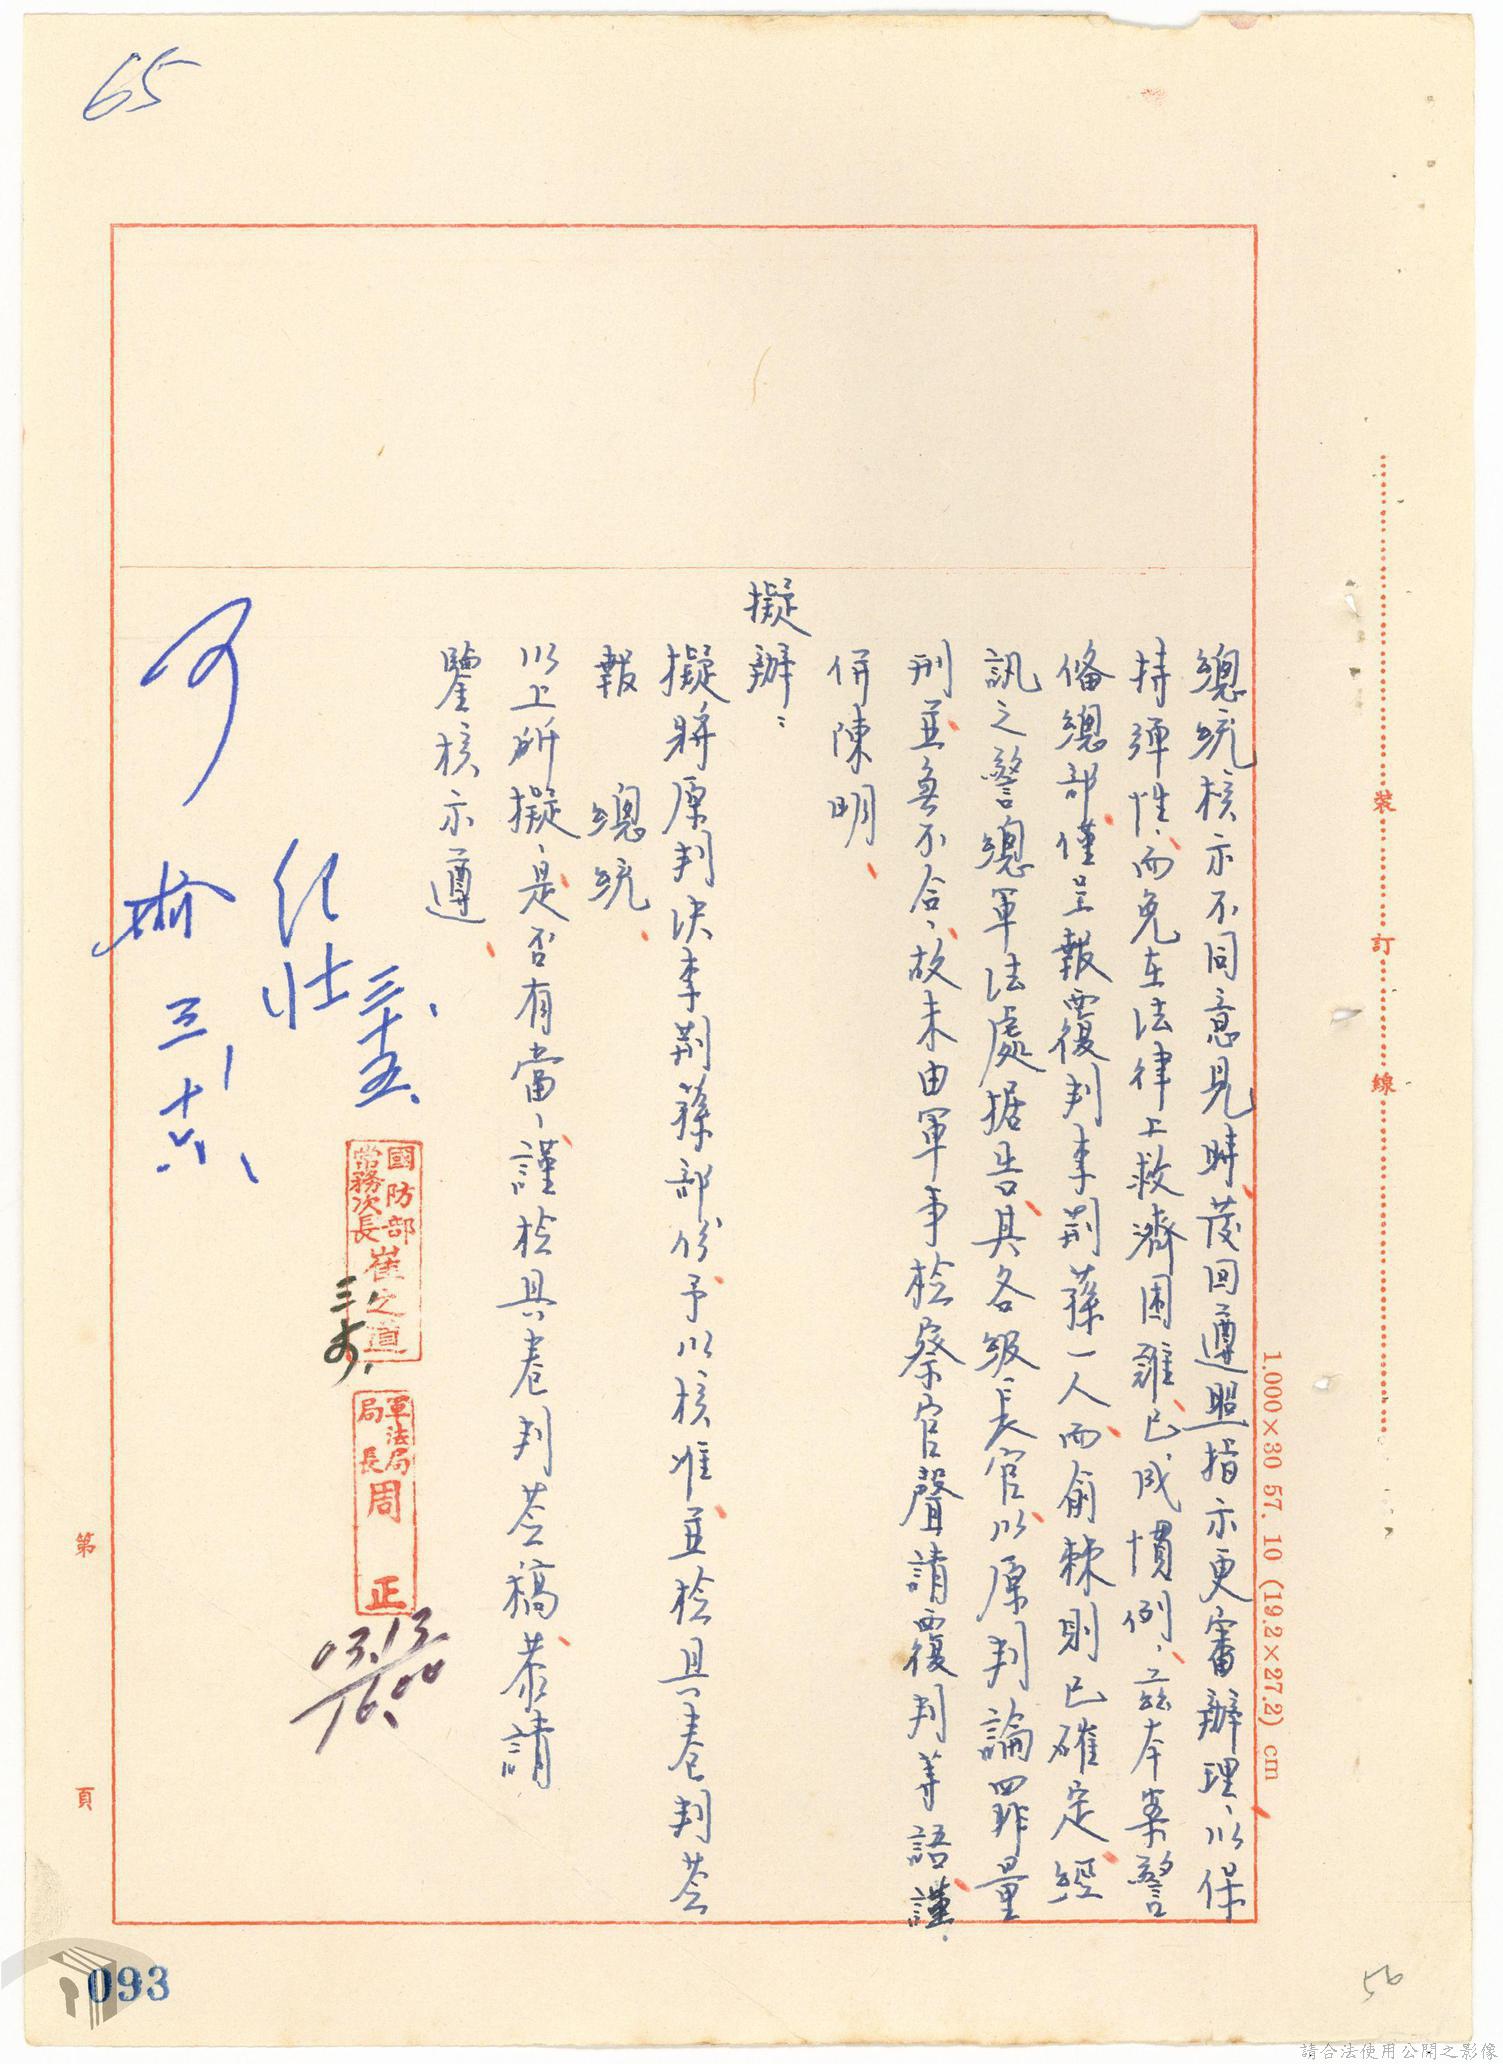 65
總統核示不同意見時發回遵照指示更審辦理、以保
持彈性、而免在法律上救濟困難已成慣例、茲本案警
備總部僅呈報覆判李荊蓀一人而俞棘則已確定經
訊之警總軍法處据告其各級長官以原判論罪量
刑並無不合、故未由軍事檢察官聲請覆判等語謹
併陳明、
擬辦：
擬將原判決李荊蓀部份予以核准並檢具卷判簽
報 總統
以上所擬、是否有當、謹檢具卷判簽稿恭請
鑒核示遵
三十五
可
三、十六
國防部
常務次長
崔之道
軍法局
局長
周正
03.13.
1600
裝
訂
線
1.000×30 57. 10 (19.2×27.2) cm
第
頁
093
56
請合法使用公開之影像